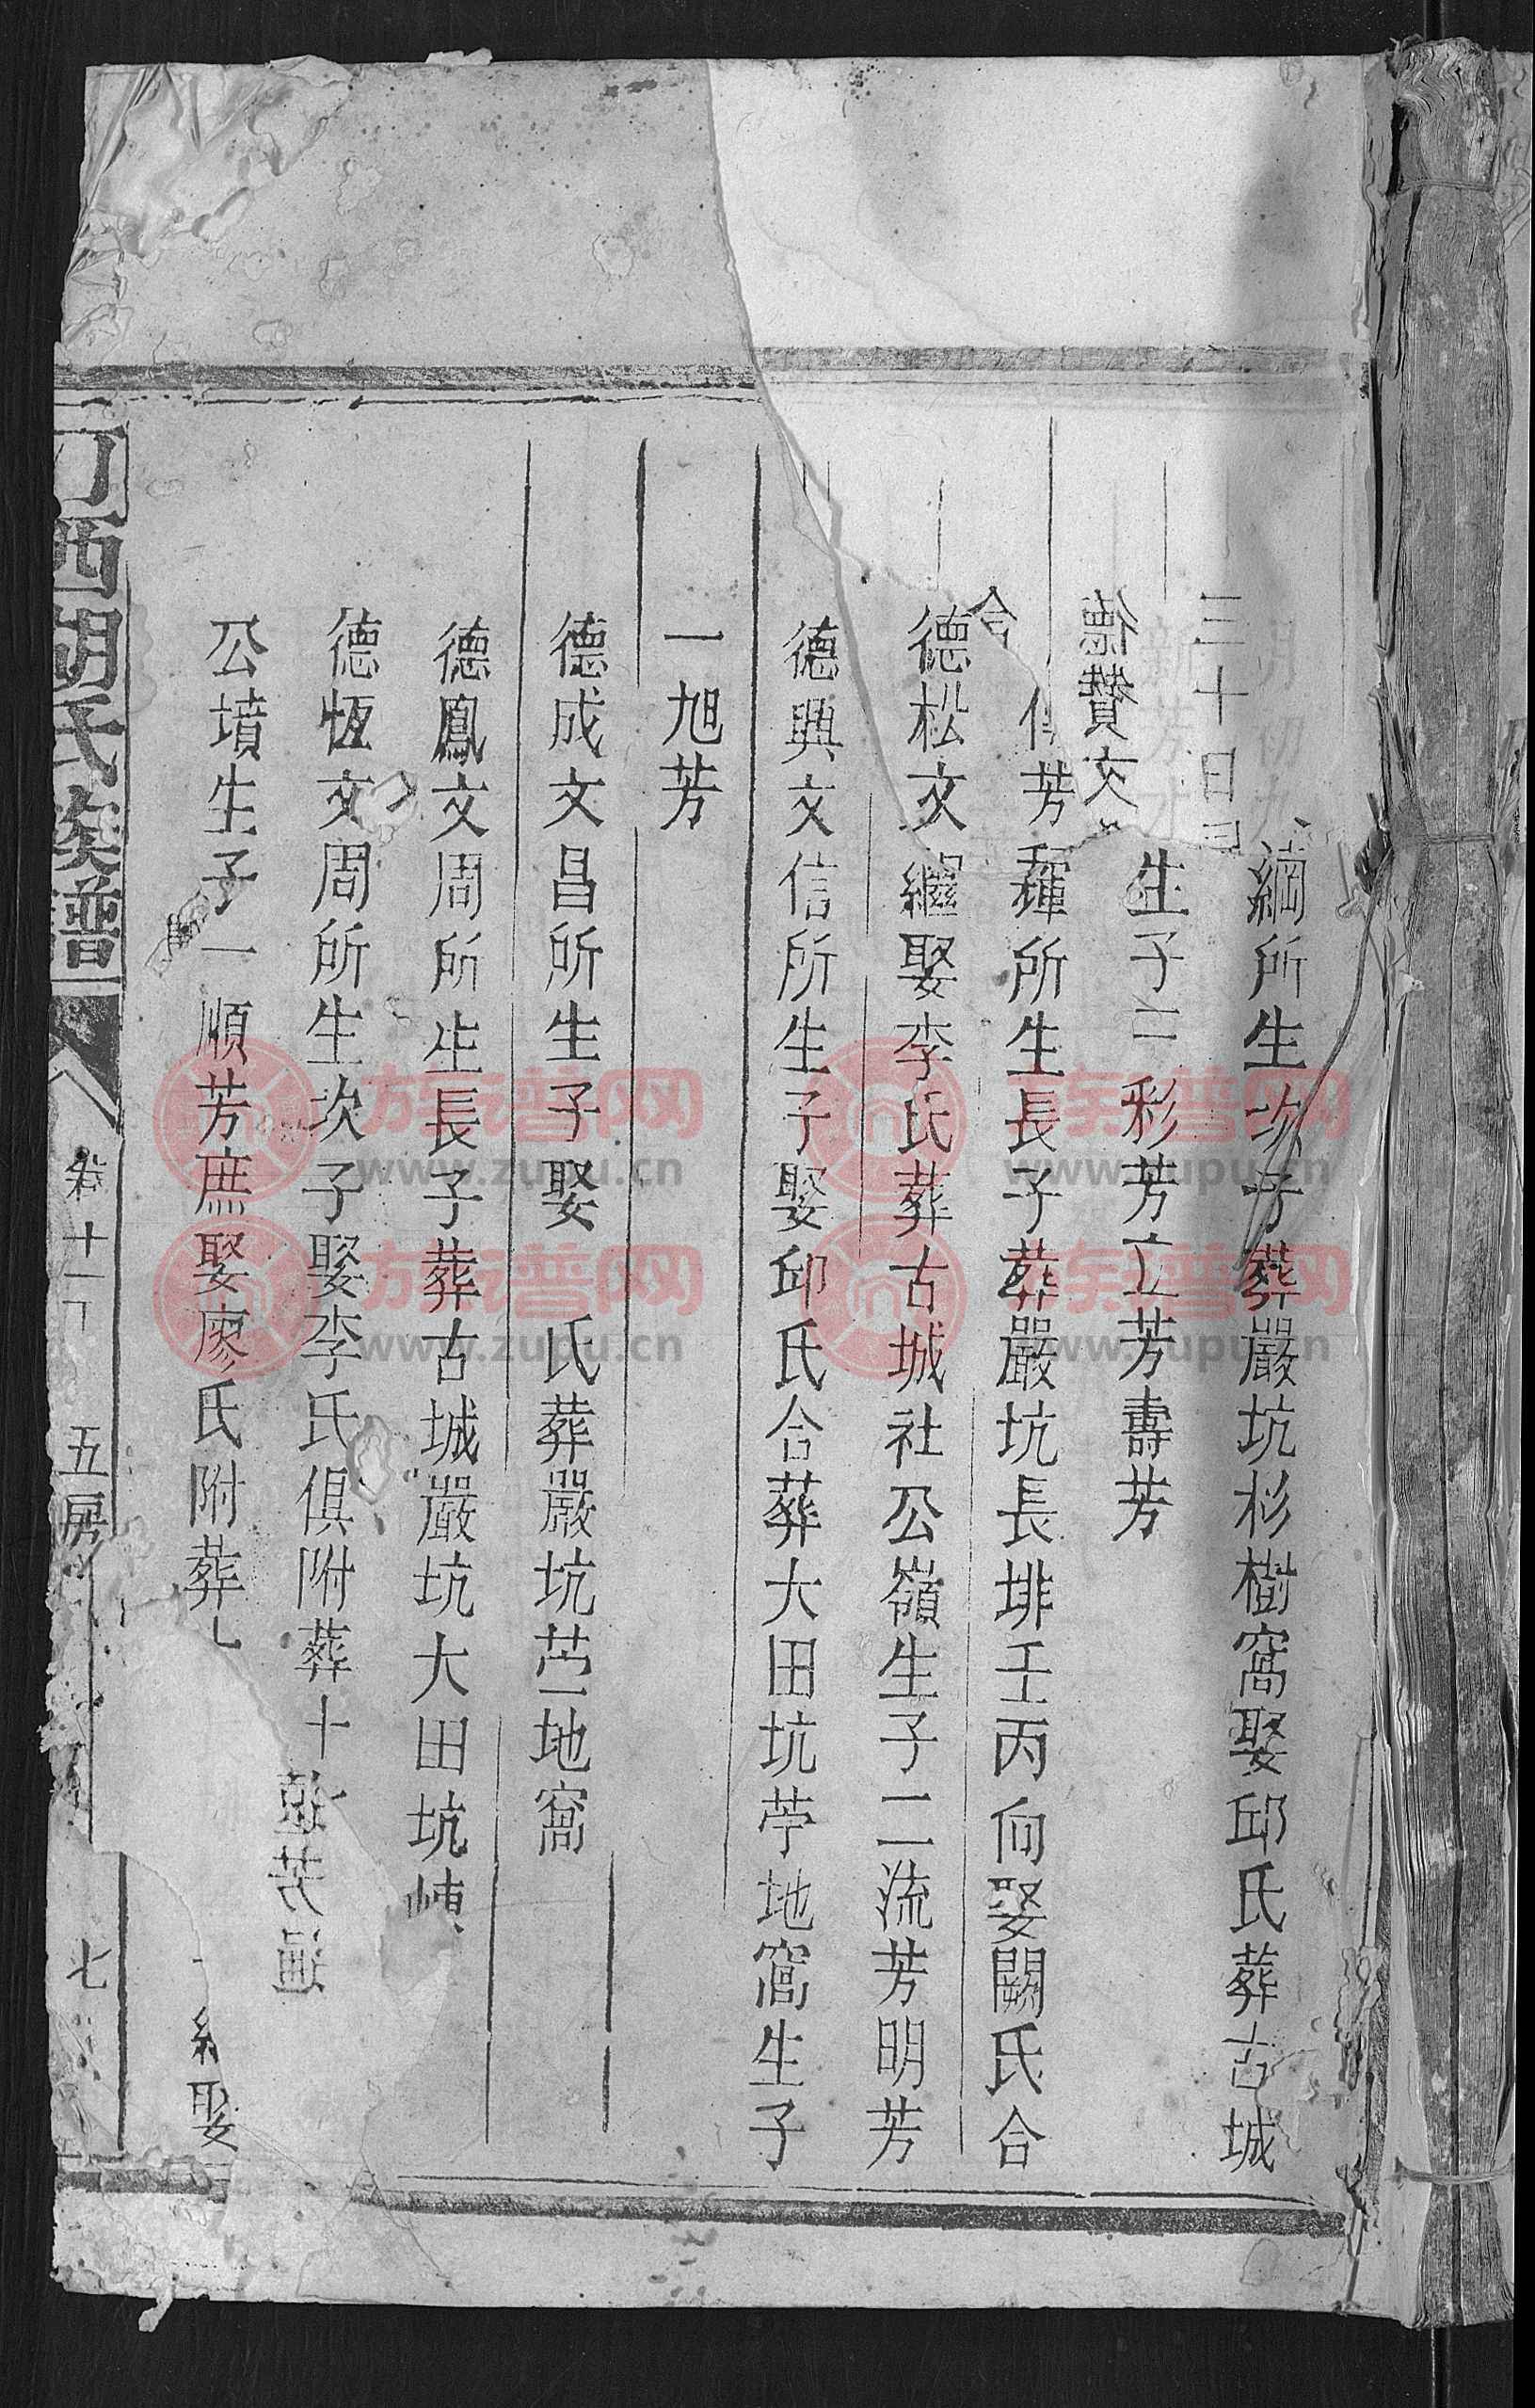 綱所生次子葬嚴坑杉樹窩娶邱氏葬古城
三十日
生子三彩芳立芳壽芳
德贊文
芳琿所生長子葬嚴坑長排壬丙向娶闕氏合
德松文繼娶李氏葬古城社公嶺生子二流芳明芳
德興文信所生子娶邱氏合葬大田坑苧地窩生子
一旭芳
德成文昌所生子娶 氏葬嚴坑苎地窩
德鳳文周所生長子葬古城嚴坑大田坑崠
德恆文周所生次子娶李氏俱附葬十
公墳生子一順芳庶娶廖氏附葬
娶
西胡氏族譜 卷十一 五房 七
族譜网
www.zupu.cn
族譜网
www.zupu.cn
族譜网
www.zupu.cn
族譜网
www.zupu.cn